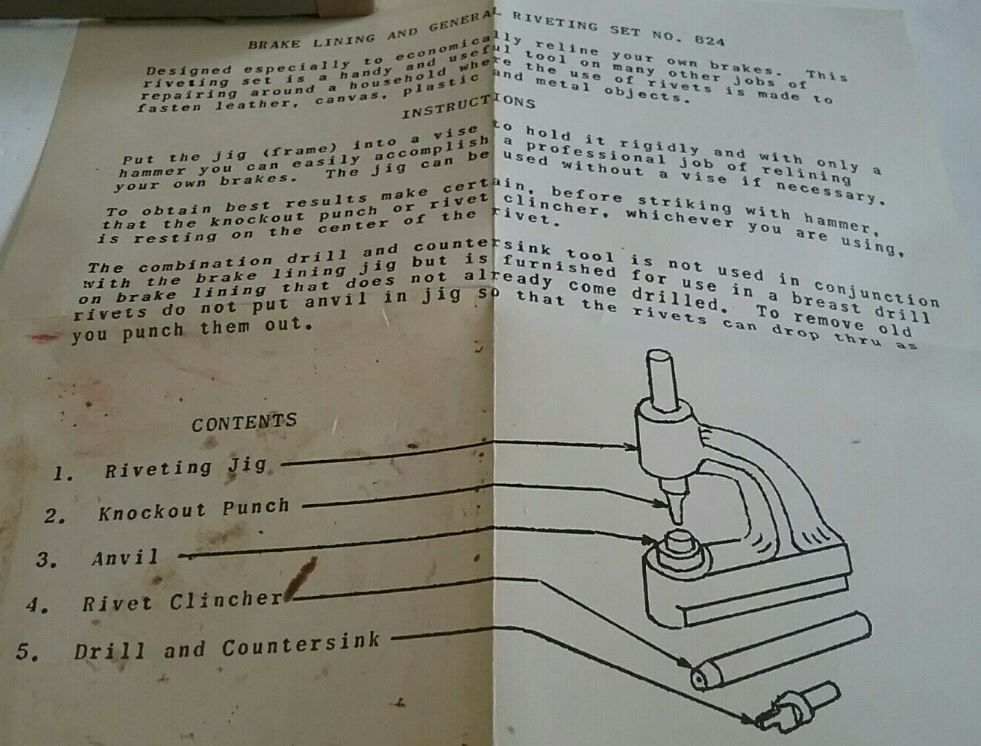 BRAKE LINING AND GENERAL RIVETING SET NO. 824
Designed especially to economically reline your own brakes. This
riveting set is a handy and useful tool on many other jobs of
repairing around a household where the use of rivets is made to
fasten leather, canvas, plastic and metal objects.
INSTRUCTIONS
Put the jig (frame) into a vise to hold it rigidly and with only a
hammer you can easily accomplish a professional job of relining
your own brakes. The jig can be used without a vise if necessary.
To obtain best results make certain, before striking with hammer,
that the knockout punch or rivet clincher, whichever you are using,
is resting on the center of the rivet.
The combination drill and countersink tool is not used in conjunction
with the brake lining jig but is furnished for use in a breast drill
on brake lining that does not already come drilled. To remove old
rivets do not put anvil in jig so that the rivets can drop thru as
you punch them out.
CONTENTS
1. Riveting Jig
2. Knockout Punch
3. Anvil
4. Rivet Clincher
5. Drill and Countersink